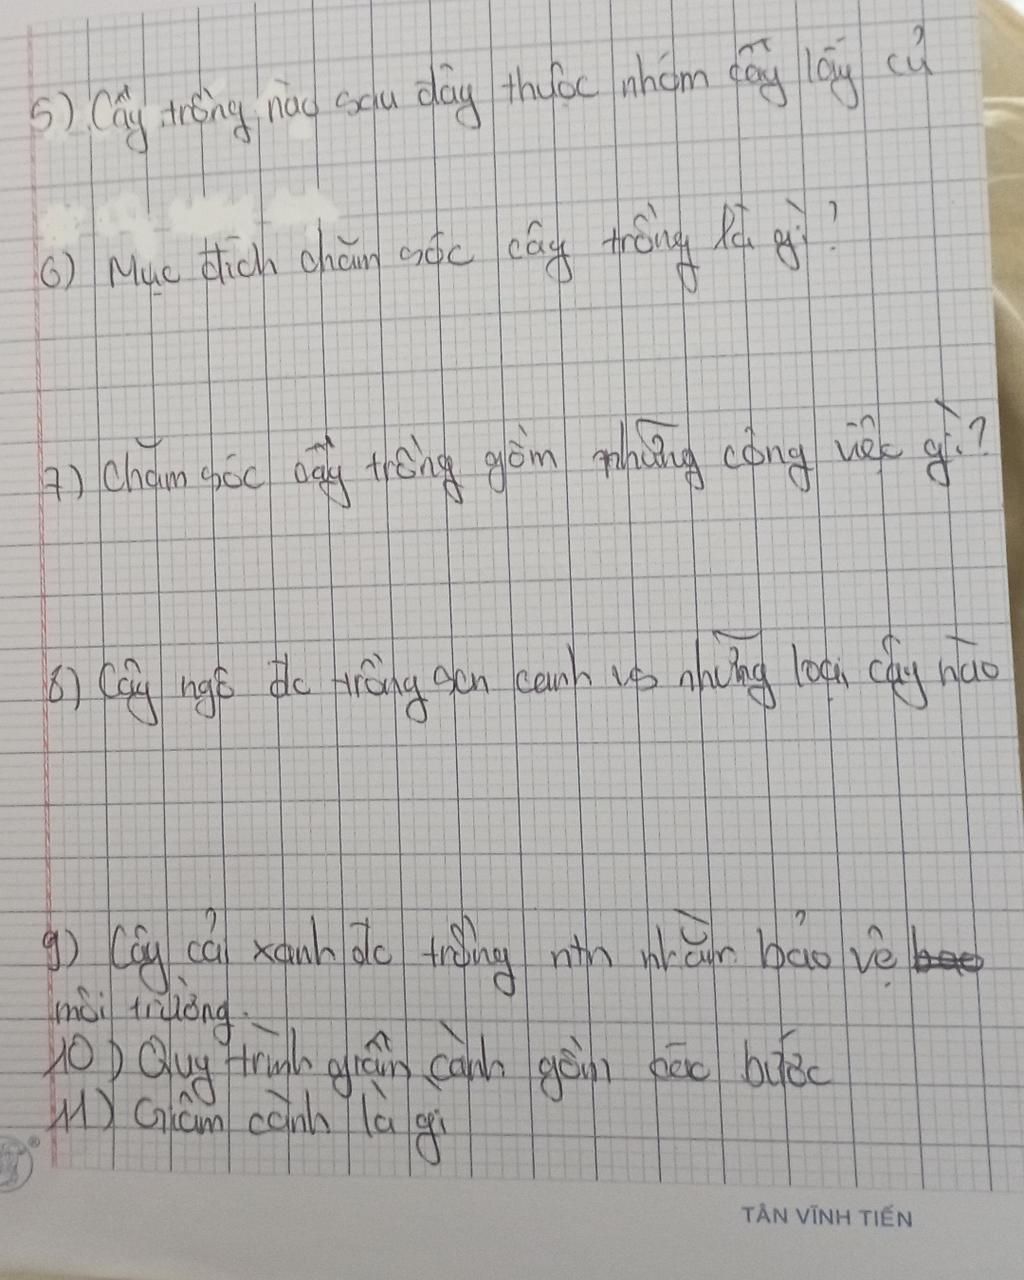 5) Cây trồng nào sau đây thuộc nhóm cây lấy củ
6) Mục đích chăm sóc cây trồng là gì?
7) Chăm sóc cây trồng gồm những công việc gì?
8) Cây ngô đc trồng xen canh vs những loại cây nào
9) Cây cải xanh đc trồng ntn nhằm bảo vệ
môi trường.
10) Quy trình giâm cành gồm các bước
11) Giâm cành là gì
TÂN VĨNH TIẾN